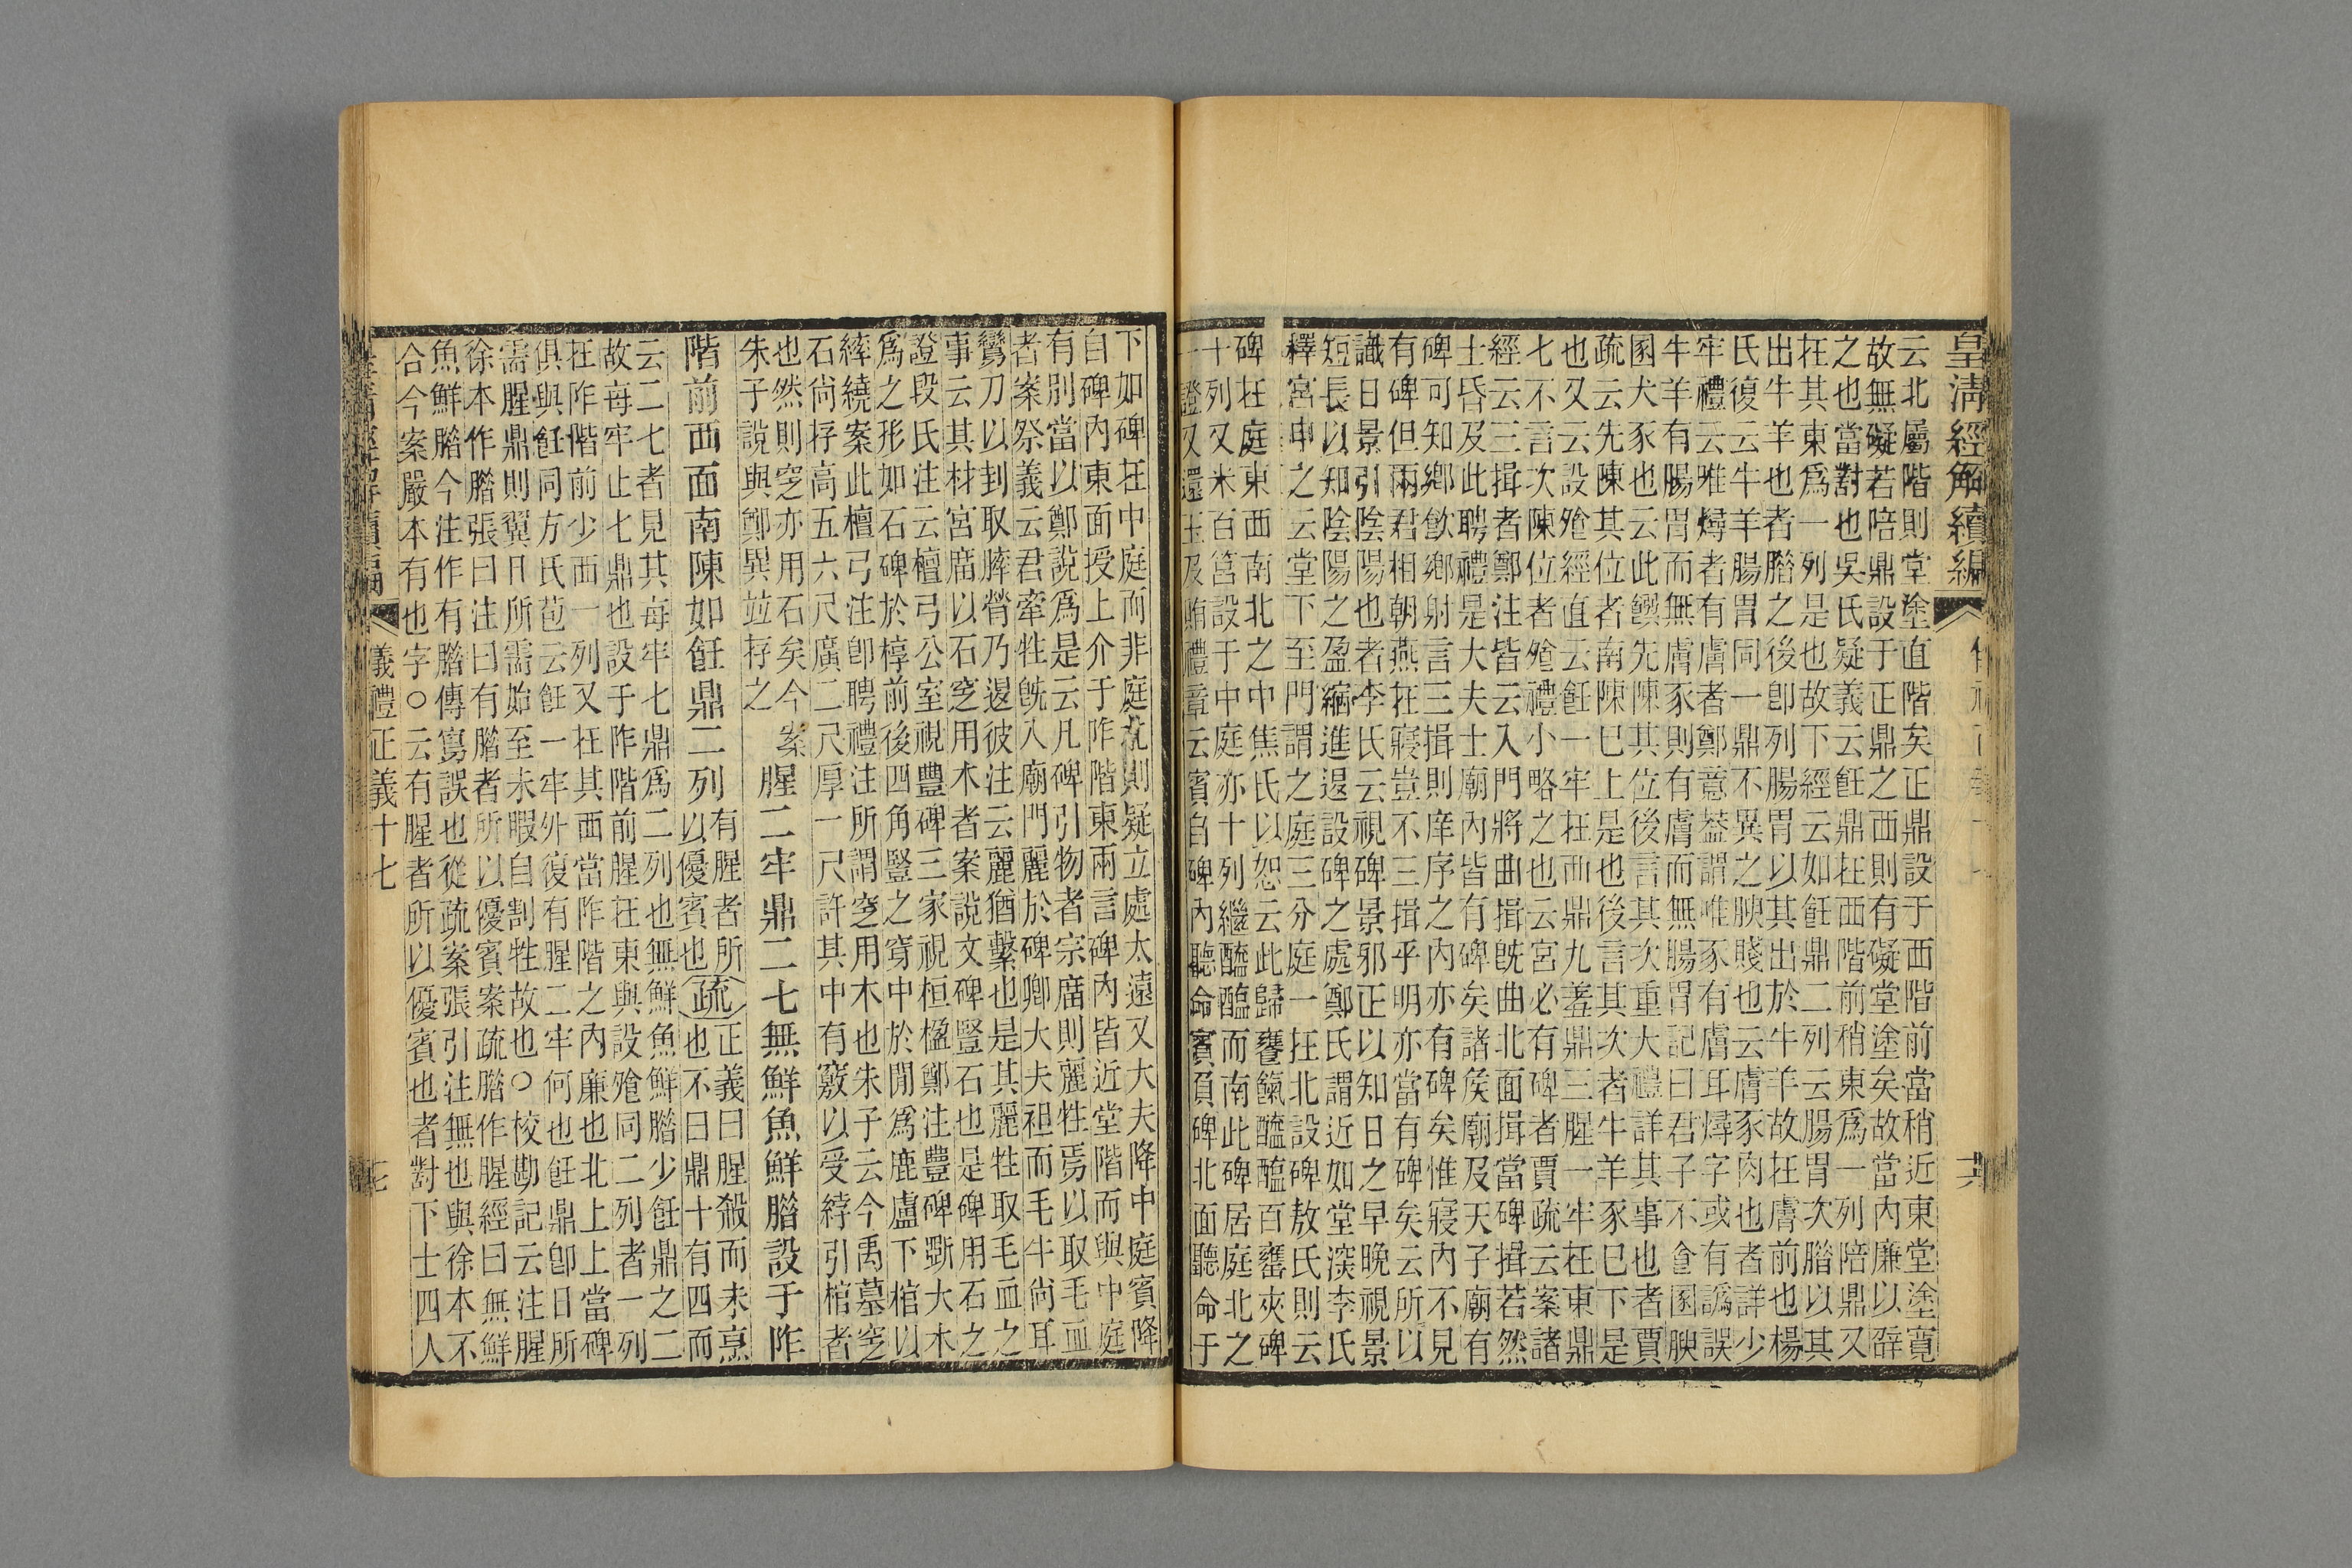 皇清經解續編
云北屬階則堂塗直階矣正鼎設于西階前當稍近東堂塗寬
故無礙若陪鼎設于正鼎之西則有礙堂塗矣故當內廉以辟
之也當對也吳氏疑義云飪鼎在西階前稍東爲一列陪鼎又
在其東爲一列是也故下經云如飪鼎二列云腸胃次腊以其
出牛羊也者腊之後卽列腸胃以其出於牛羊故在膚前也楊
氏復云牛羊腸胃同一鼎不異之腴賤也云膚豕肉也者詳少
牢禮云雅燖者有膚者鄭意葢謂唯豕有膚耳燖字或有譌誤
牛羊有腸胃而無膚豕則有膚而無腸胃記曰君子不食圂腴
圂犬豕也云此饌先陳其位後言其次重大禮詳其事也者賈
疏云先陳其位者南陳已上是也後言其次者牛羊豕已下是
也又云設飧經直云飪一牢在西鼎九羞鼎三腥一牢在東鼎
七不言次陳位者飧禮小略之也云宮必有碑者賈疏云案諸
經云三揖者鄭注皆云入門將曲揖旣曲北面揖當碑揖若然
士昏及此聘禮是大夫士廟內皆有碑矣諸矦廟及天子廟有
碑可知鄉飮鄉射言三揖則庠序之內亦有碑矣惟寢內不見
有碑但兩君相朝燕在寢豈不三揖乎明亦當有碑矣云所以
識日景引陰陽也者李氏云視碑景邪正以知日之早晚視景
短長以知陰陽之盈縮進退設碑之處鄭氏謂近如堂深李氏
釋宮申之云堂下至門謂之庭三分庭一在北設碑敖氏則云
碑在庭東西南北之中焦氏以恕云此歸饔餼醯醢百罋夾碑
十列又米百筥設于中庭亦十列繼醯醢而南此碑居庭北之
一證又還玉及賄禮章云賓自碑內聽命賓負碑北面聽命于
下如碑在中庭而非庭北則疑立處太遠又大夫降中庭賓降
自碑內東面授上介于阼階東兩言碑內皆近堂階而與中庭
有別當以鄭說爲是云凡碑引物者宗廟則麗牲焉以取毛血
者案祭義云君牽牲旣入廟門麗於碑卿大夫袒而毛牛尙耳
鸞刀以刲取膟膋乃退彼注云麗猶繫也是其麗牲取毛血之
事云其材宮廟以石窆用木者案說文碑豎石也是碑用石之
證段氏注云檀弓公室視豐碑三家視桓楹鄭注豐碑斲大木
爲之形如石碑於椁前後四角豎之穿中於閒爲鹿盧下棺以
繂繞案此檀弓注卽聘禮注所謂窆用木也朱子云今禹墓窆
石尙存高五六尺廣二尺厚一尺許其中有竅以受綍引棺者
也然則窆亦用石矣今案
朱子說與鄭異竝存之
腥二牢鼎二七無鮮魚鮮腊設于阼
階前西面南陳如飪鼎二列
有腥者所
以優賓也
疏
正義曰腥殺而未烹
也不曰鼎十有四而
云二七者見其每牢七鼎爲二列也無鮮魚鮮腊少飪鼎之二
故每牢止七鼎也設于阼階前腥在東與設飧同二列者一列
在阼階前少西一列又在其西當阼階之內廉也北上上當碑
俱與飪同方氏苞云飪一牢外復有腥二牢何也飪鼎卽日所
需腥鼎則翼日所需始至未暇自割牲故也○校勘記云注腥
徐本作腊張曰注曰有腊者所以優賓案疏腊作腥經曰無鮮
魚鮮腊今注作有腊傳寫誤也從疏案張引注無也與徐本不
合今案嚴本有也字○云有腥者所以優賓也者對下士四人
儀禮正義十七